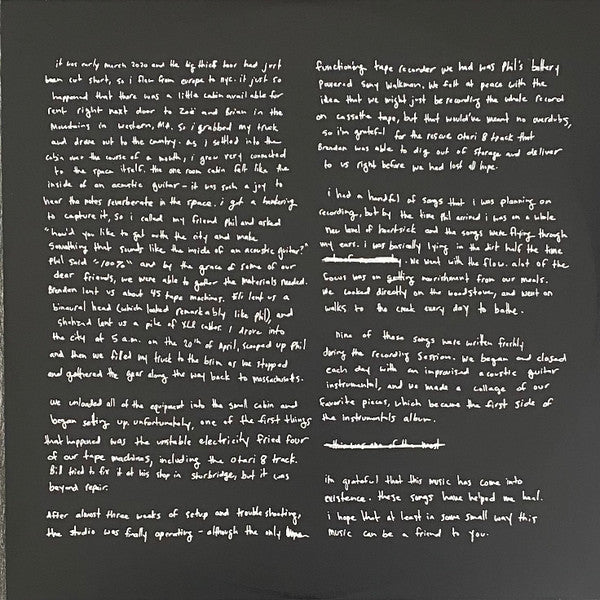 it was early march 2020 and the big thief tour had just
been cut short, so i flew from europe to nyc. it just so
happened that there was a little cabin available for
rent right next door to Zoë and Brian in the
mountains in western, Ma. so i grabbed my truck
and drove out to the country. As i settled into the
cabin over the course of a month, i grew very connected
to the space itself. the one room cabin felt like the
inside of an acoustic guitar - it was such a joy to
hear the notes reverberate in the space. i got a hankering
to capture it, so i called my friend Phil and asked
"how'd you like to get outta the city and make
something that sounds like the inside of an acoustic guitar?"
Phil said "100%" and by the grace of some of our
dear friends, we were able to gather the materials needed.
Brandon lent us about 45 tape machines. Eli lent us a
binaural head (which looked remarkably like phil), and
shahzad lent us a pile of XLR cables. I drove into
the city at 5 a.m. on the 20th of April, scooped up Phil
and then we filled my truck to the brim as we stopped
and gathered the gear along the way back to massachusetts.
we unloaded all of the equipment into the small cabin and
began setting up. unfortunately, one of the first things
that happened was the unstable electricity fried four
of our tape machines, including the otari 8 track.
Bill tried to fix it at his shop in sturbridge, but it was
beyond repair.
After almost three weeks of setup and trouble shooting,
the studio was finally operating - although the only
functioning tape recorder we had was Phil's battery
powered Sony Walkman. We felt at peace with the
idea that we might just be recording the whole record
on cassette tape, but that would've meant no overdubs,
so i'm grateful for the rescue otari 8 track that
Brandon was able to dig out of storage and deliver
to us right before we had lost all hope.
i had a handful of songs that i was planning on
recording, but by the time Phil arrived i was on a whole
new level of heartsick and the songs were flying through
my ears. i was basically lying in the dirt half the time
. We went with the flow. alot of the
focus was on getting nourishment from our meals.
We cooked directly on the woodstove, and went on
walks to the creek every day to bathe.
Nine of these songs were written freshly
during the recording session. We began and closed
each day with an improvised acoustic guitar
instrumental, and we made a collage of our
favorite pieces, which became the first side of
the Instrumentals album.
this was one of the most
im grateful that this music has come into
existence. these songs have helped me heal.
i hope that at least in some small way this
music can be a friend to you.